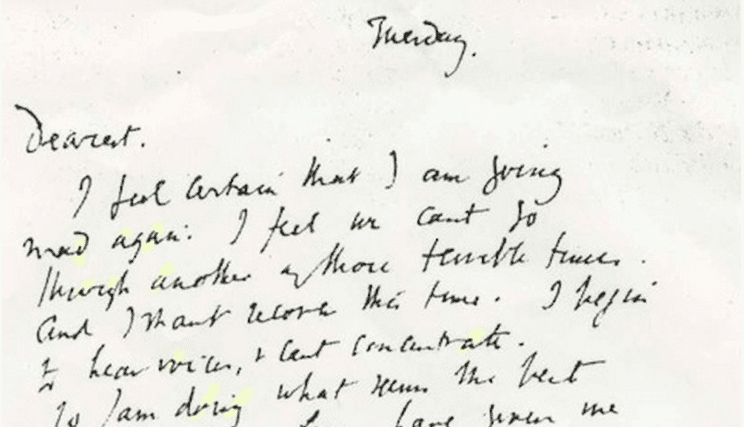 Tuesday.
Dearest.
I feel certain that I am going
mad again. I feel we cant go
through another of those terrible times.
And I shant recover this time. I begin
to hear voices, & cant concentrate.
So I am doing what seems the best
have given me